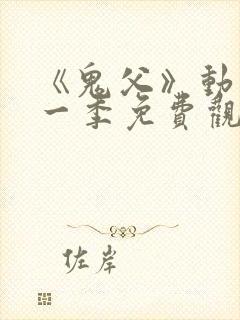 《鬼父》動
一季免費觀
佐岸